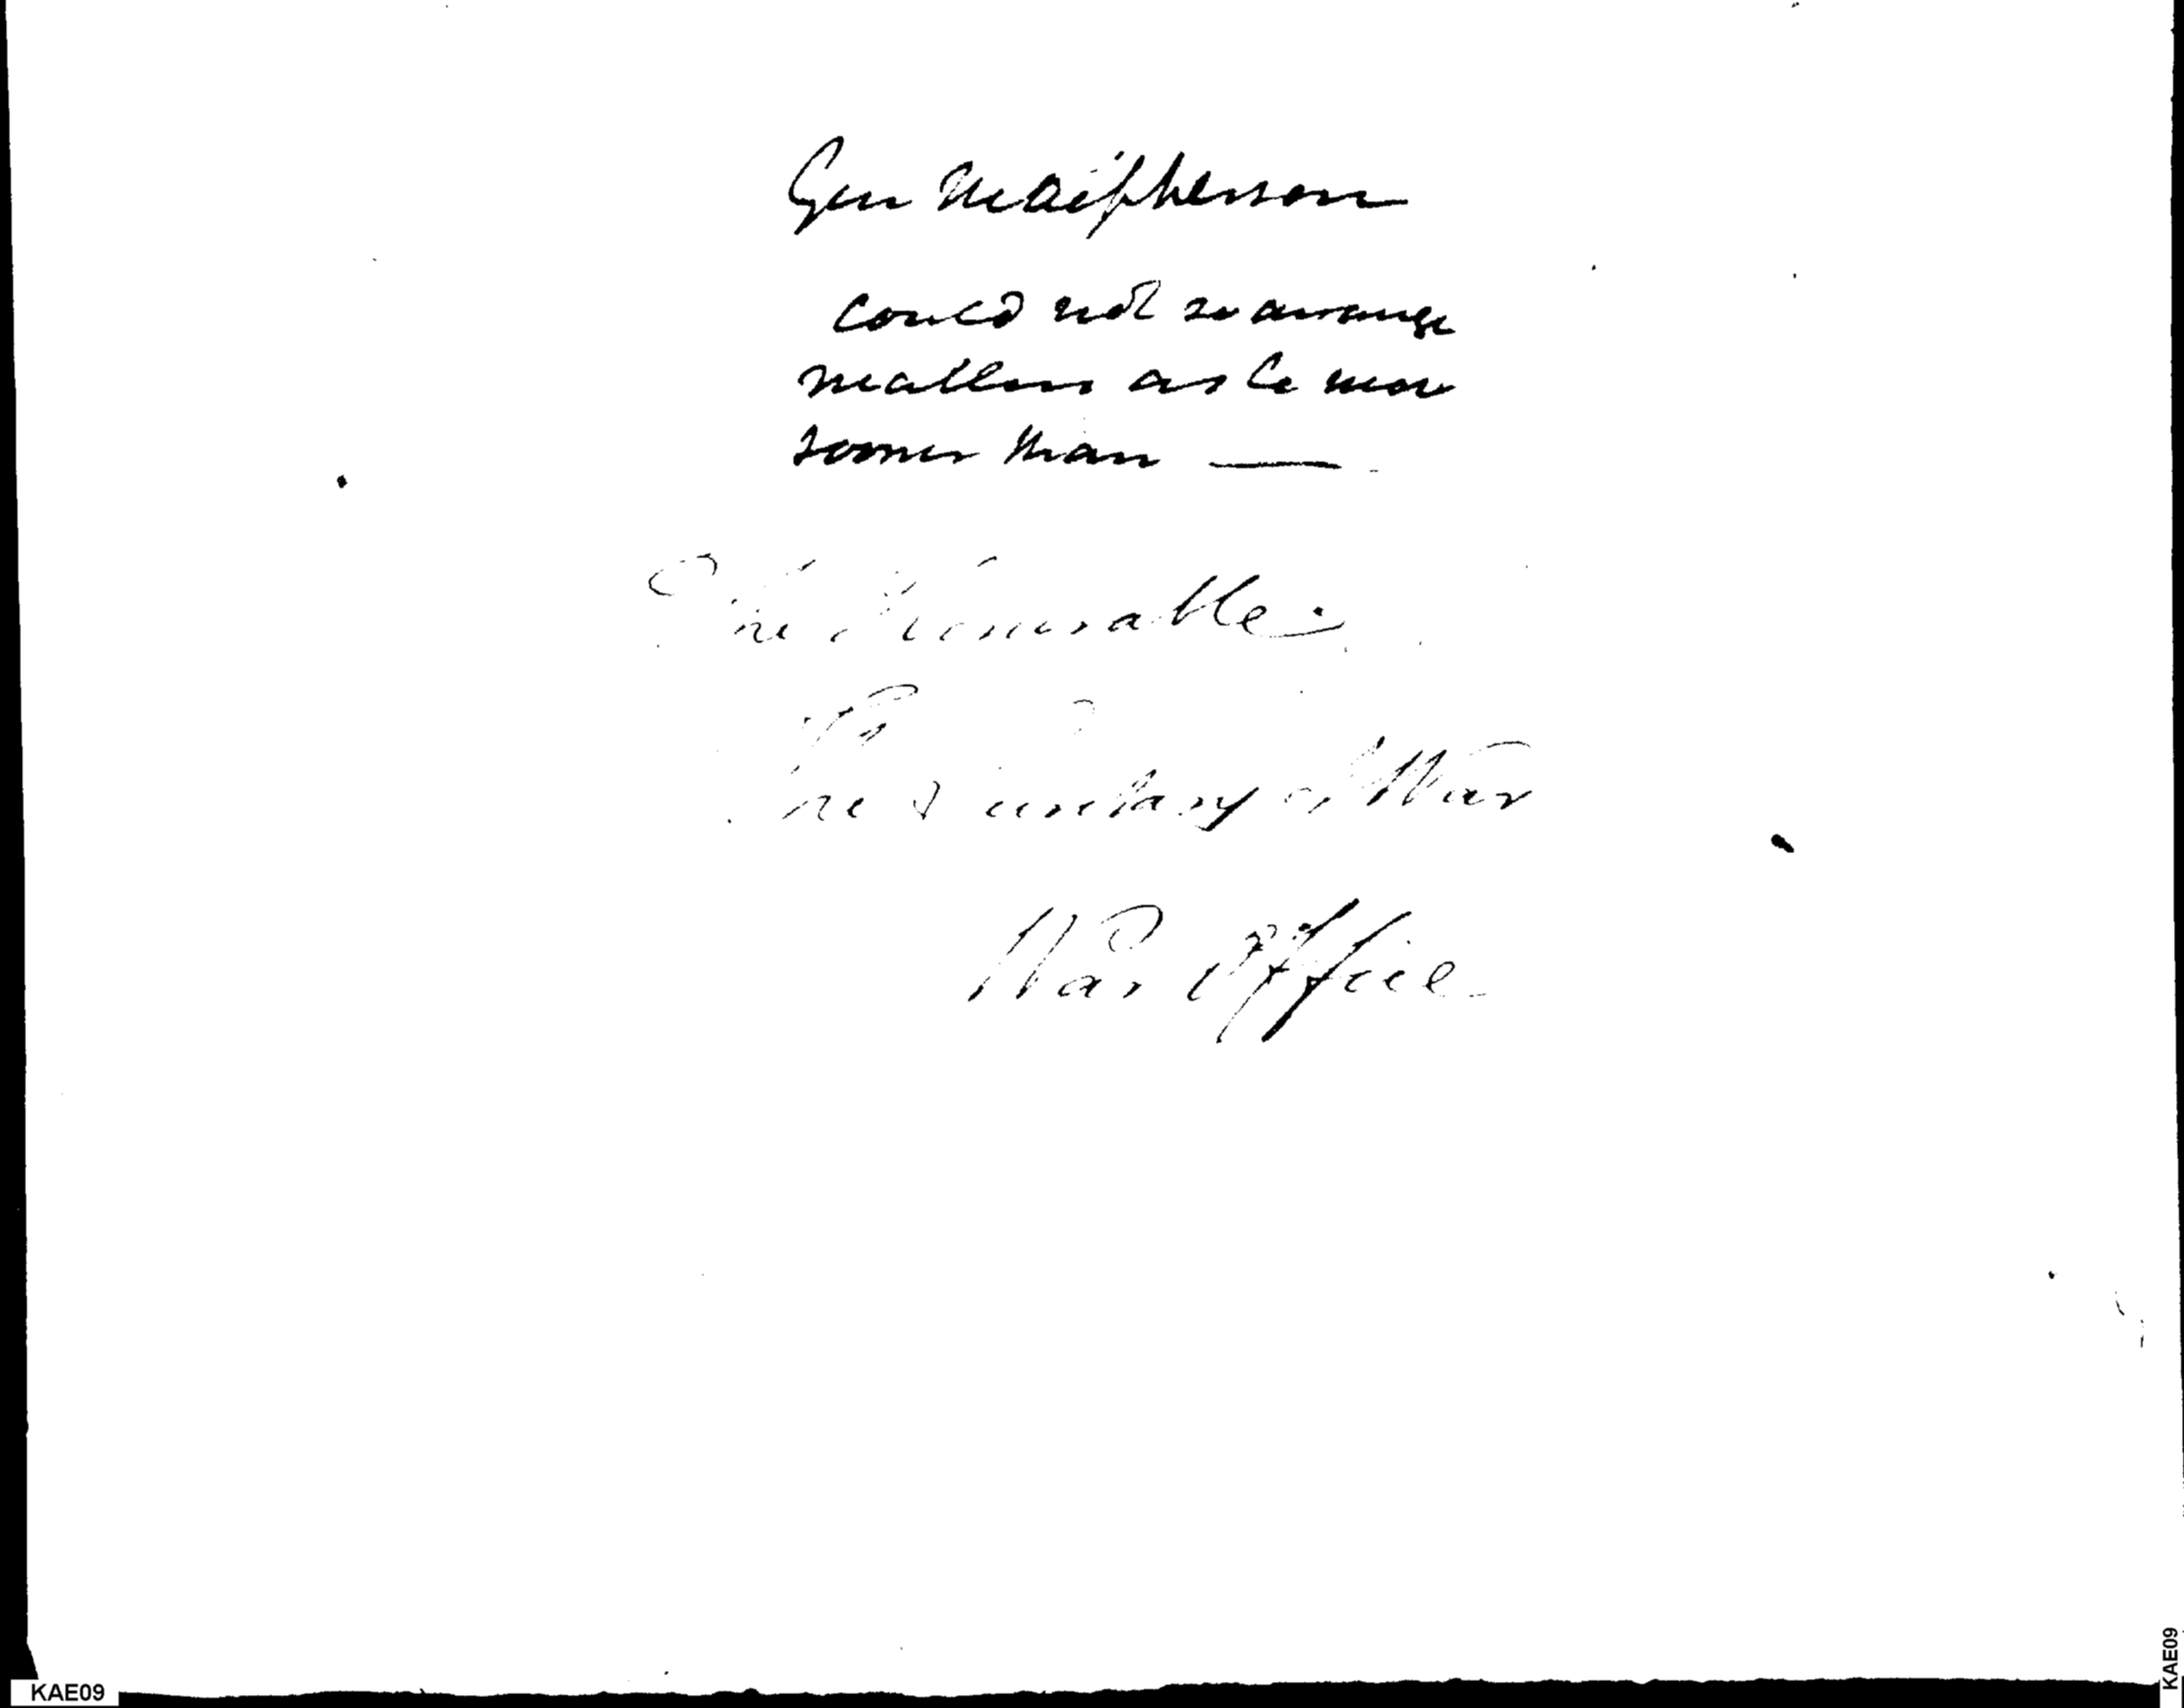 Gen MacPherson
could not so arrange
matters as to move
sooner than —
The Honorable
The Secretary of War
War Office
KAE09
KAE09